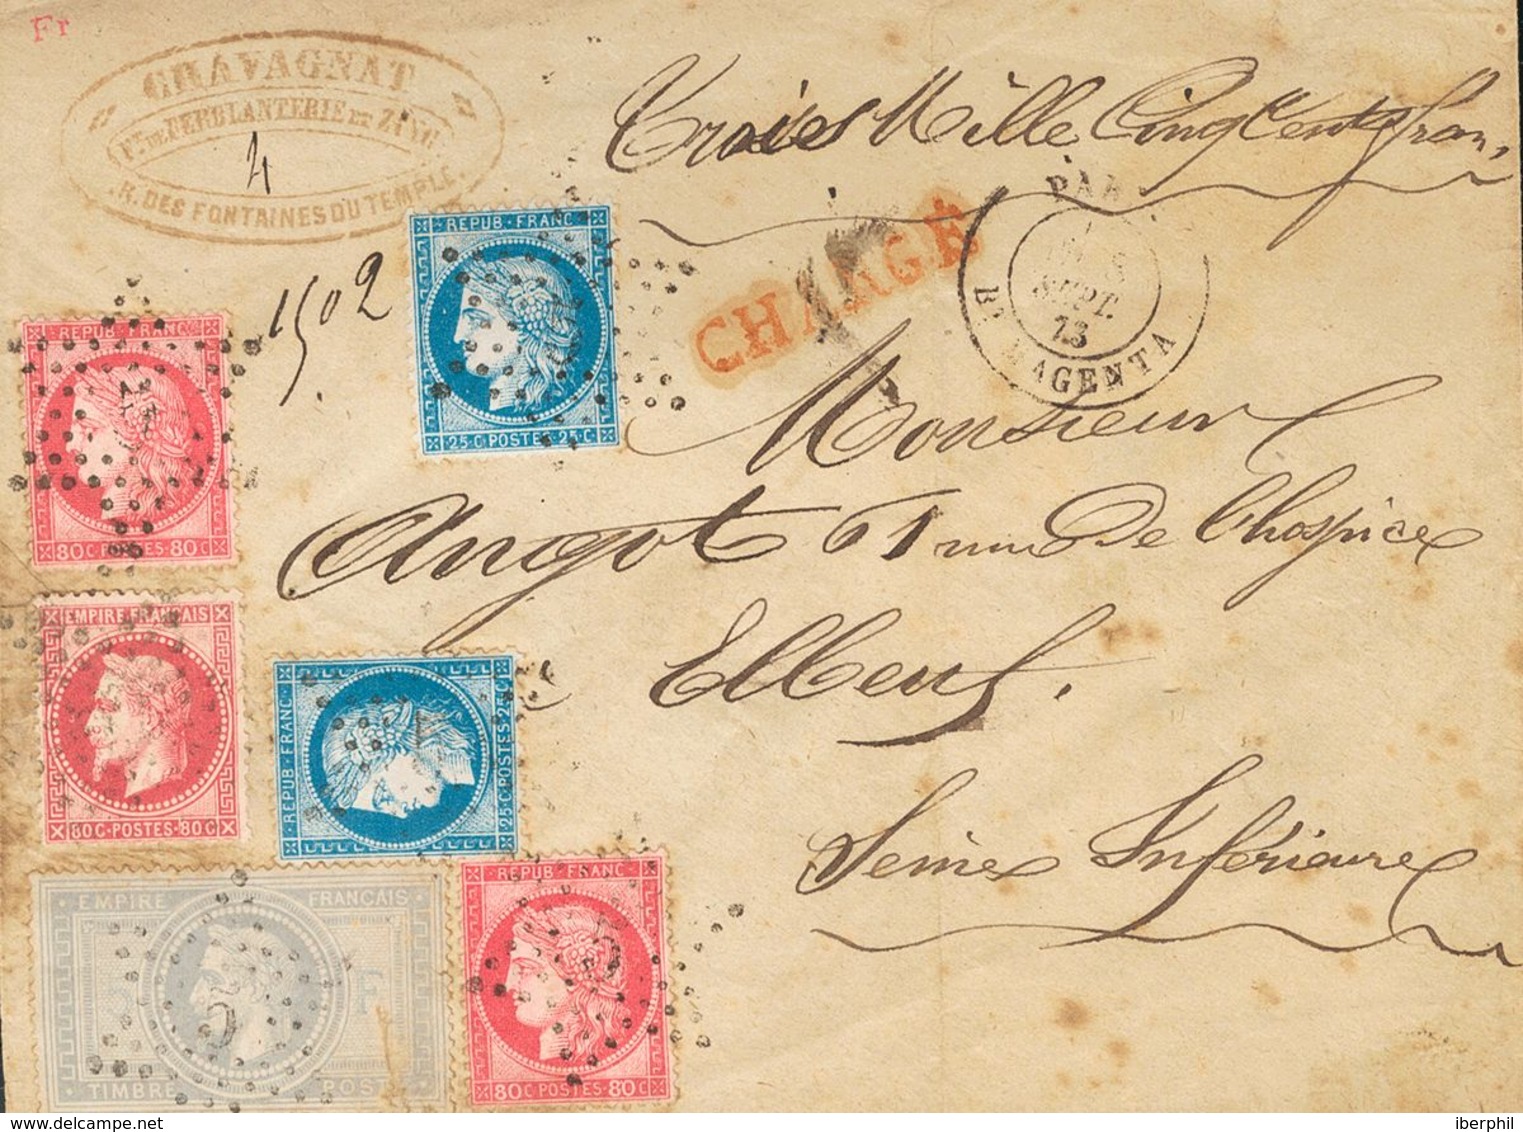 Fr
GRAVAGNAT
Ft DE FERBLANTERIE ET ZINC
4
R. DES FONTAINES DU TEMPLE.
Trois Mille Cinq Cents fran
1502
CHARGÉ
PARIS
SEPT.
73
BD MAGENTA
Monsieur
Angot 61 rue De l'hospice
Elbeuf.
Seine Inférieure
REPUB FRANC
25 C POSTES 25 C
REPUB FRANC
80 C POSTES 80 C
EMPIRE FRANÇAIS
80 C POSTES 80 C
REPUB FRANC
25 C POSTES 25 C
EMPIRE FRANÇAIS
5 F
TIMBRE POSTE
REPUB FRANC
80 C POSTES 80 C
iberphil